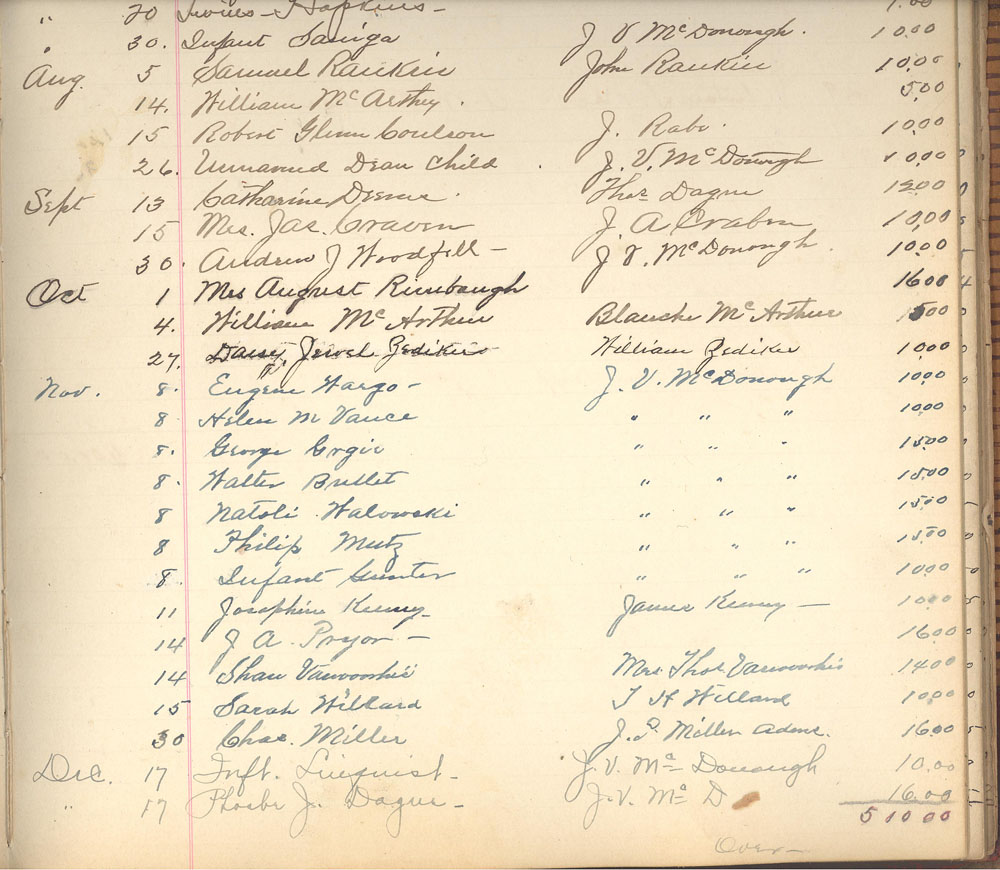 " 20 Hopkins - 1.00
" 30. Infant Saniga J V McDonough. 10.00
Aug. 5 Samuel Rankin John Rankin 10.00
14. William McArthy. 5.00
15 Robert Glenn Coulson J. Rabe. 10.00
26. Unnamed Dean Child. J. V. McDonough 10.00
Sept 13 Catharine Deems. Thos Dague
15 Mrs. Jas. Craven J. A Craben 10.00
30. Andrew J Woodfill - J. V. McDonough. 10.00
Oct 1 Mrs August Rimbaugh 16.00
4. William McArthur Blanche McArthur 5.00
27. Daisy Jewel Zediker William Zediker 10.00
Nov. 8. Eugene Hargo - J. V. McDonough 10.00
8 Helen M Vance " " " 10.00
8. George Grgic " " " 15.00
8. Walter Brillet " " " 15.00
8 Natoli Walowski " " " 15.00
8 Philip Mutz " " " 15.00
8. Infant Gunter " " " 10.00
11 Josephine Kenny - James Kenny - 10.00
14 J A. Pryor - 16.00
14 Shan Vanvoorhis Mrs. Thos Vanvoorhis 14.00
15 Sarah Willard T H Willard 10.00
30 Chas. Miller J. D. Miller Admr. 16.00
Dec. 17 Inft. Linquist - J. V. McDonough 10.00
" 17 Phoebe J. Dague - J. V. Mc D 16.00
510 00
Over -